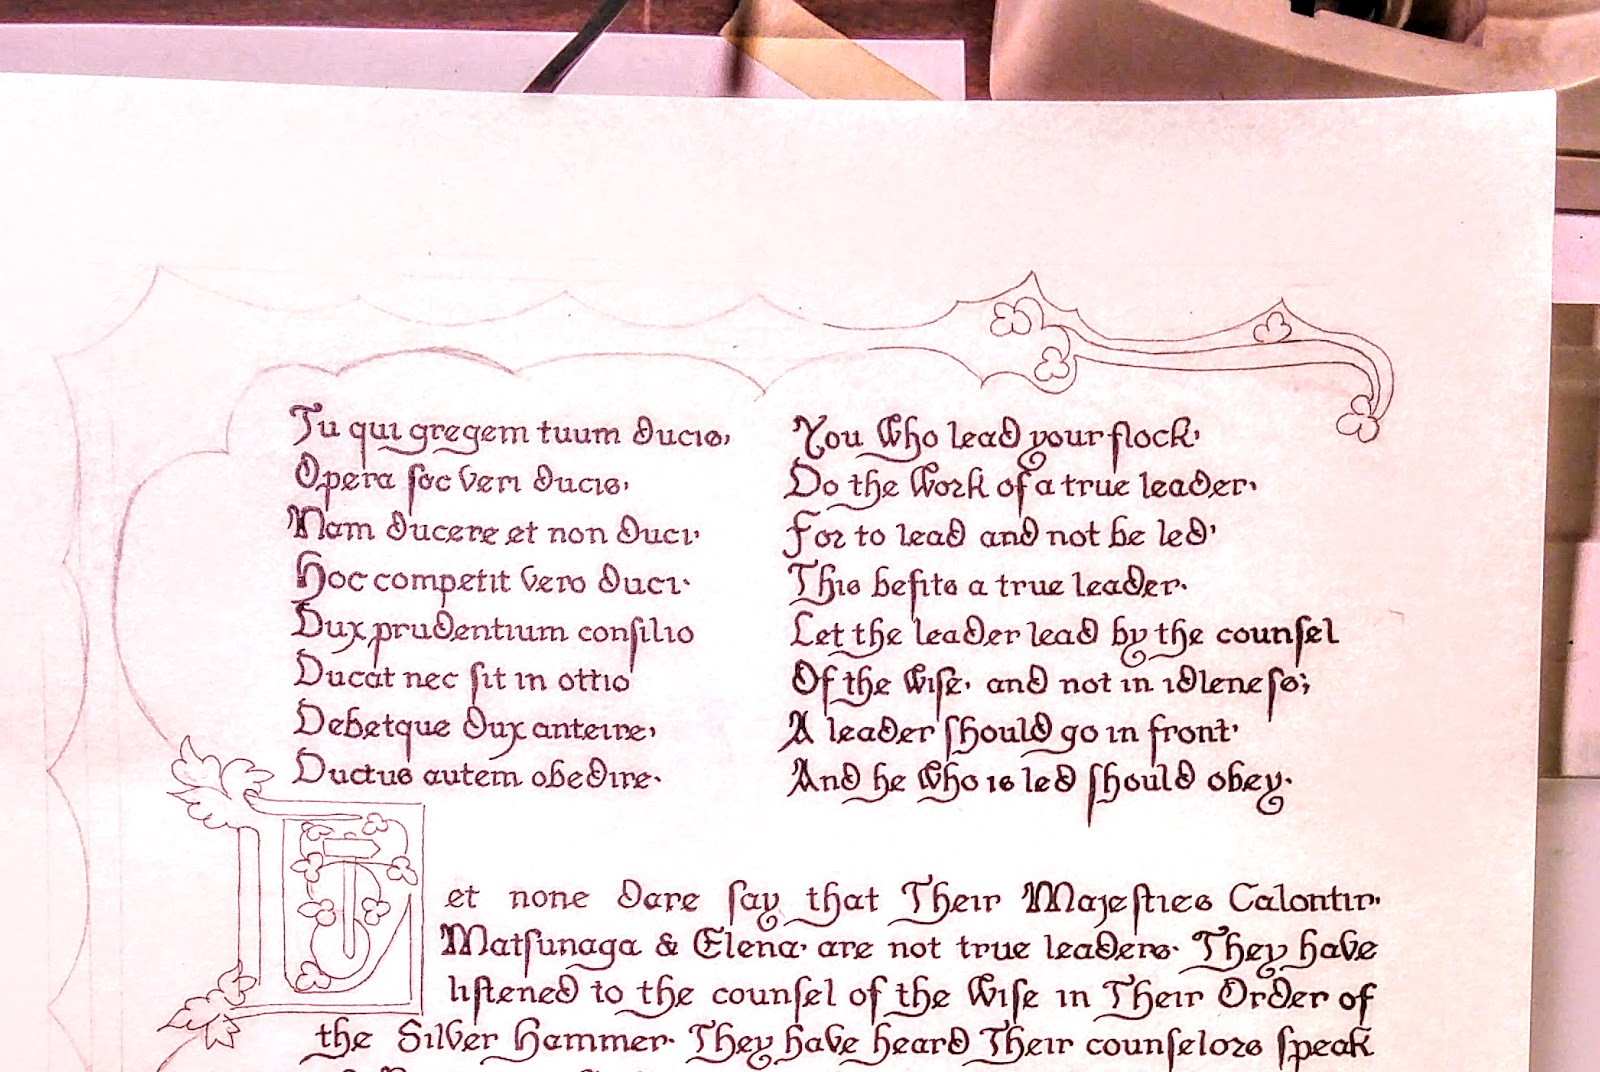 Tu qui gregem tuum ducis,
Opera foc veri ducis,
Nam ducere et non duci,
Hoc competit vero duci.
Dux prudentium conſilio
Ducat nec ſit in ottio
Debetque dux anteire,
Ductus autem obedire.
You who lead your flock,
Do the work of a true leader,
For to lead and not be led,
This befits a true leader.
Let the leader lead by the counſel
Of the wiſe, and not in idleneſs;
A leader ſhould go in front,
And he who is led ſhould obey.
Let none dare ſay that Their Majeſties Calontir,
Matſunaga & Elena, are not true leaders. They have
liſtened to the counſel of the wiſe in Their Order of
the Silver Hammer. They have heard Their counſelors ſpeak